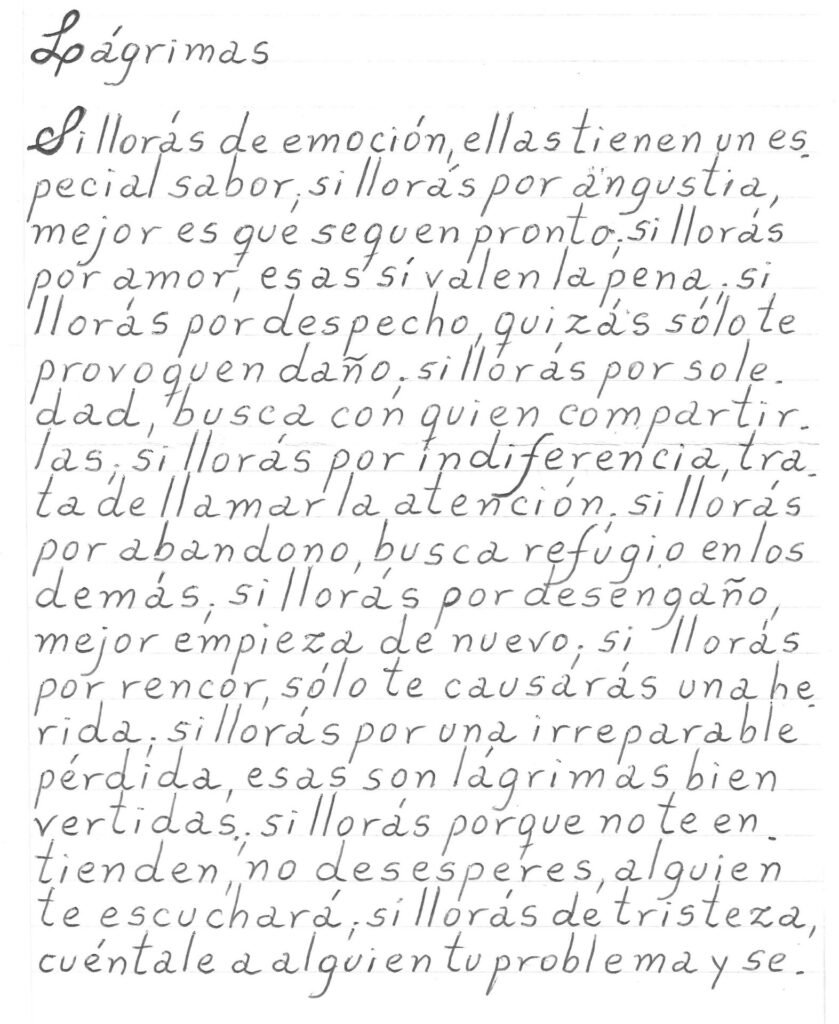 Lágrimas
Si llorás de emoción, ellas tienen un es-
pecial sabor; si llorás por angustia,
mejor es que sequen pronto; si llorás
por amor, esas sí valen la pena; si
llorás por despecho, quizás sólo te
provoquen daño; si llorás por sole-
dad, busca con quien compartir-
las; si llorás por indiferencia, tra-
ta de llamar la atención; si llorás
por abandono, busca refúgio en los
demás; si llorás por desengaño,
mejor empieza de nuevo; si llorás
por rencor, sólo te causarás una he-
rida; si llorás por una irreparable
pérdida, esas son lágrimas bien
vertidas; si llorás porque no te en-
tienden, no desesperes, alguien
te escuchará; si llorás de tristeza,
cuéntale a alguien tu problema y se-